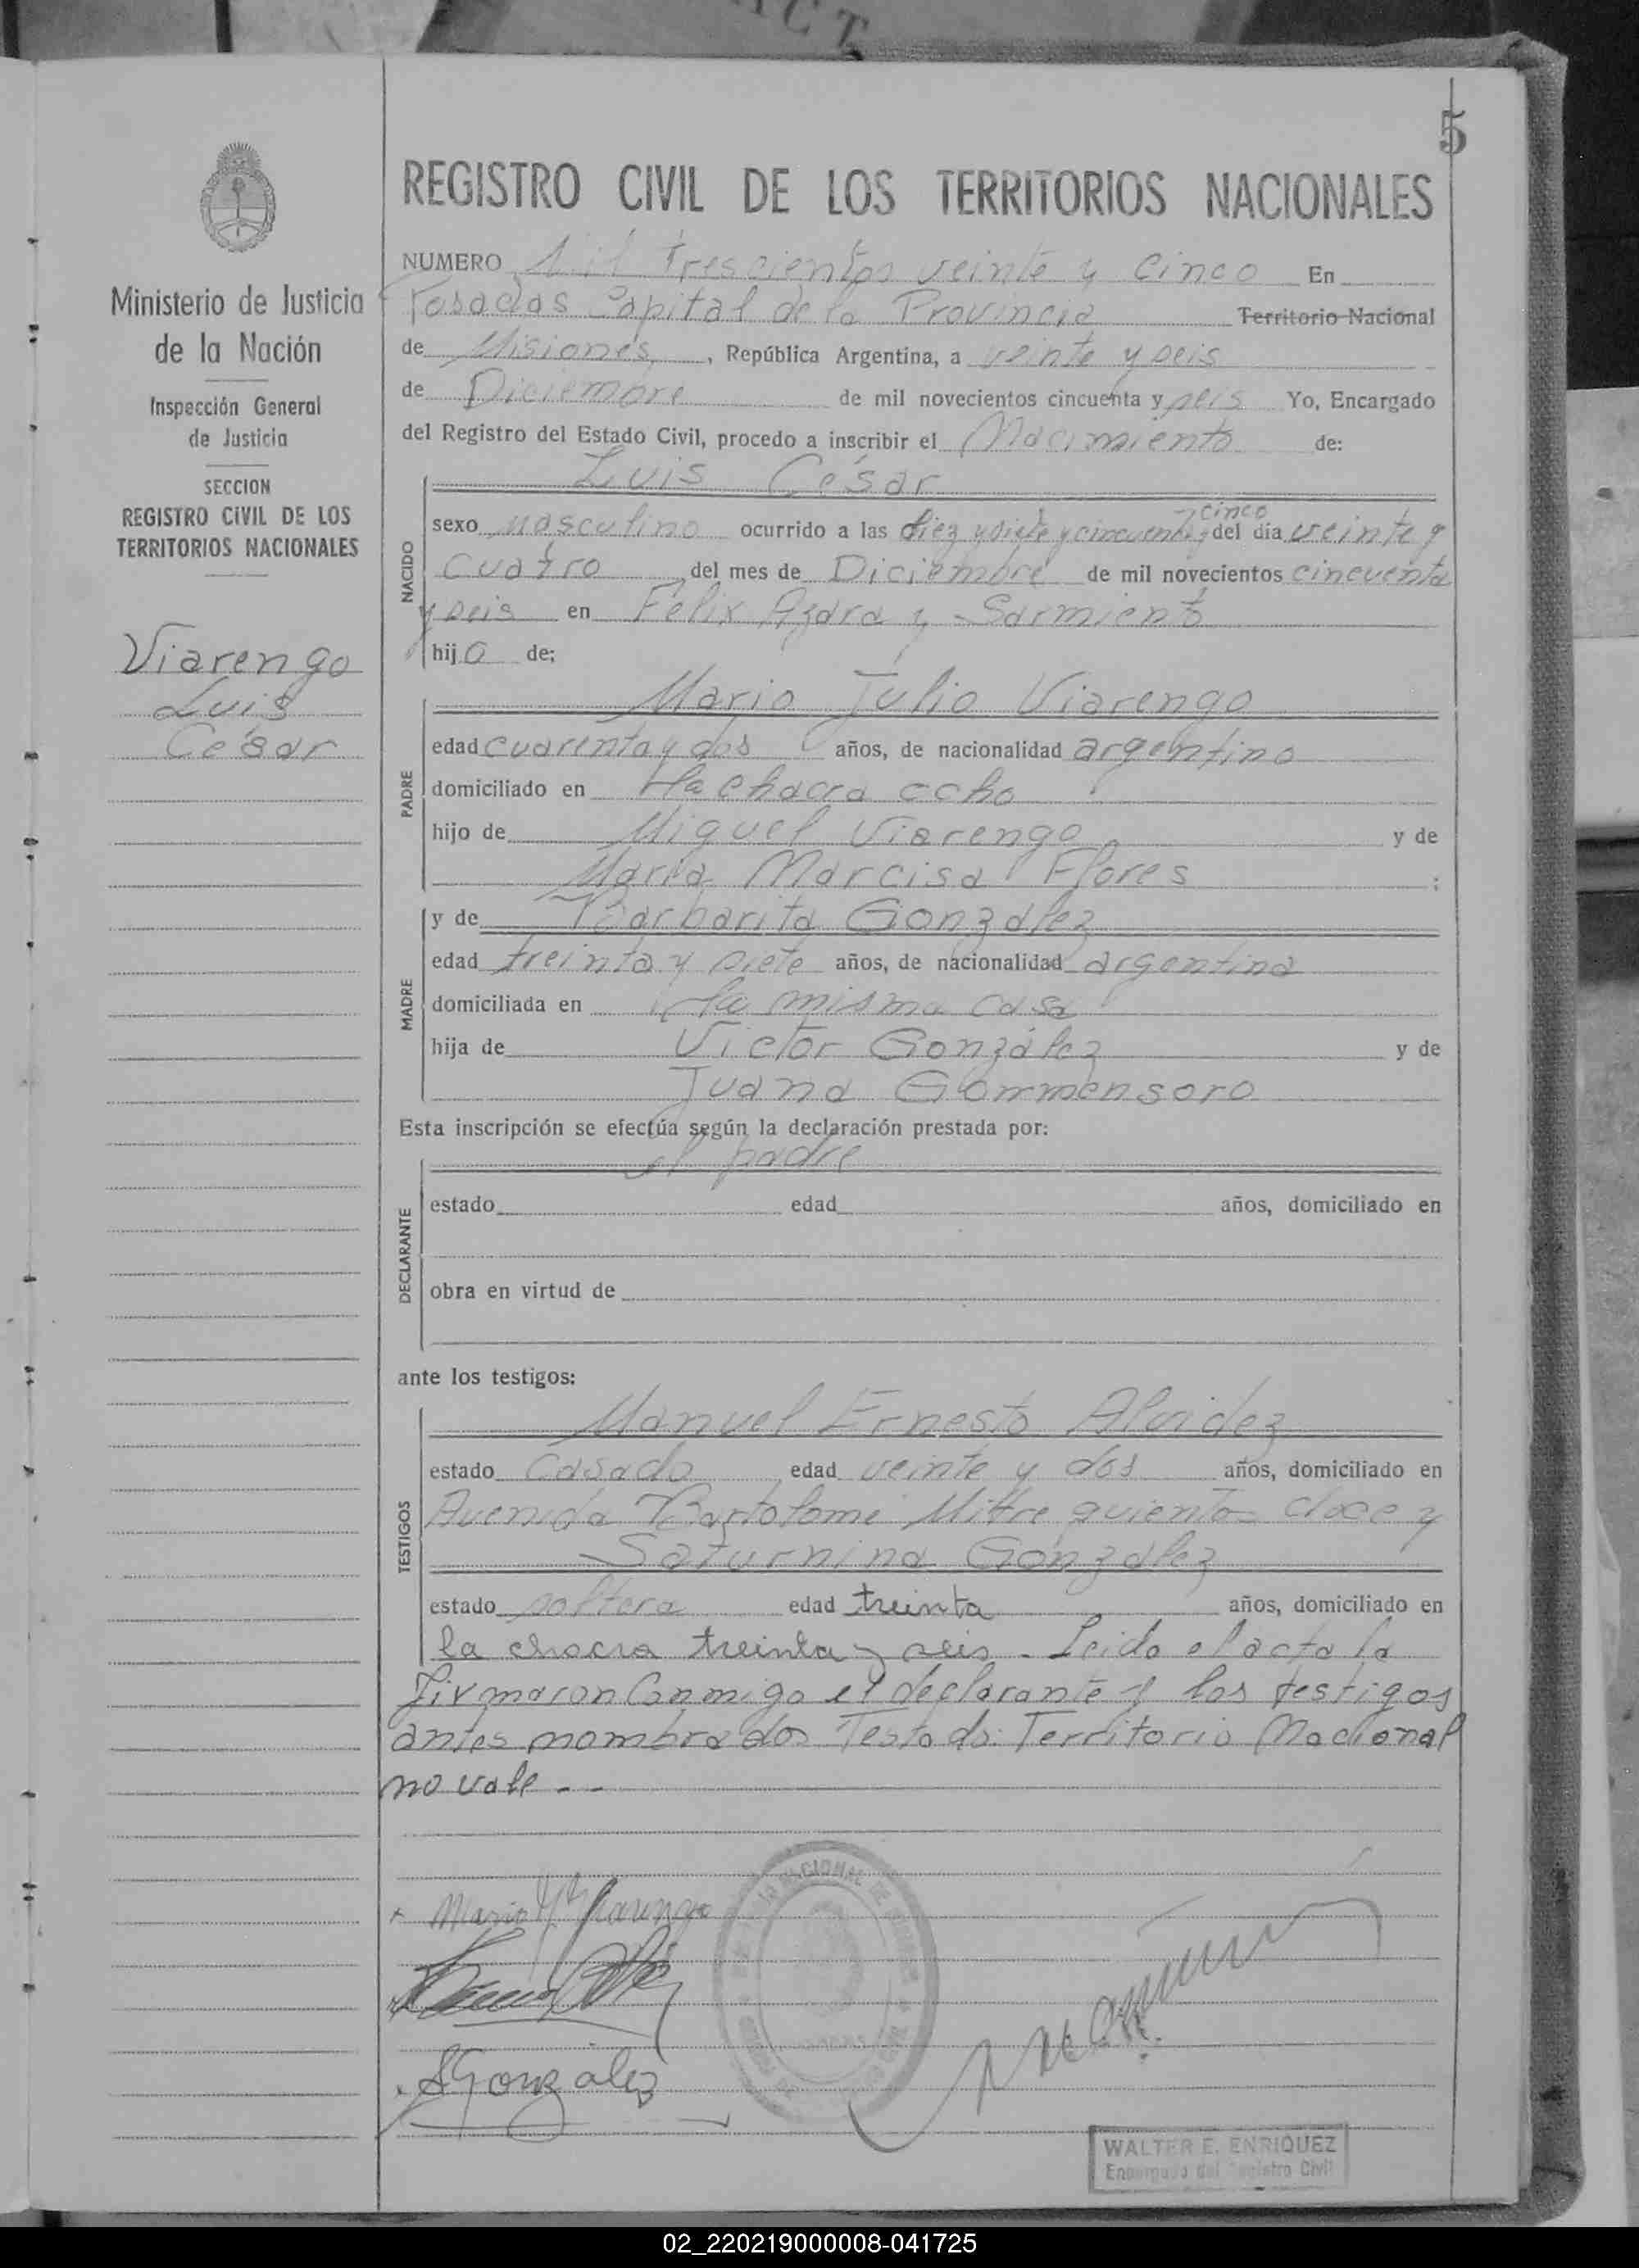 5
REGISTRO CIVIL DE LOS TERRITORIOS NACIONALES
Ministerio de Justicia
de la Nación
Inspección General
de Justicia
SECCION
REGISTRO CIVIL DE LOS
TERRITORIOS NACIONALES
Viarengo
Luis
César
NUMERO Mil trescientos veinte y cinco En
Posadas Capital de la Provincia Territorio Nacional
de Misiones, República Argentina, a veinte y seis
de Diciembre de mil novecientos cincuenta y seis Yo, Encargado
del Registro del Estado Civil, procedo a inscribir el Nacimiento de:
Luis César
NACIDO
cinco
sexo masculino ocurrido a las diez y siete y cincuenta y del día veinte y
cuatro del mes de Diciembre de mil novecientos cincuenta
y seis en Félix Azara y Sarmiento
hijo de;
PADRE
Mario Julio Viarengo
edad cuarenta y dos años, de nacionalidad argentino
domiciliado en la chacra ocho
hijo de Miguel Viarengo y de
María Narcisa Flores :
MADRE
y de Barbarita González
edad treinta y siete años, de nacionalidad argentina
domiciliada en la misma casa
hija de Victor González y de
Juana Gommensoro
Esta inscripción se efectúa según la declaración prestada por:
el padre
DECLARANTE
estado edad años, domiciliado en
obra en virtud de
ante los testigos:
TESTIGOS
Manuel Ernesto Alvidez
estado casado edad veinte y dos años, domiciliado en
Avenida Bartolomé Mitre quientos doce y
Saturnina González
estado soltera edad treinta años, domiciliado en
la chacra treinta y seis. Leido el acta la
firmaron conmigo el declarante y los testigos
antes nombrados Testado: Territorio Nacional
no vale - -
Mario J Viarengo
SGonzález
WALTER E. ENRIQUEZ
Encargado del Registro Civil
02_220219000008-041725